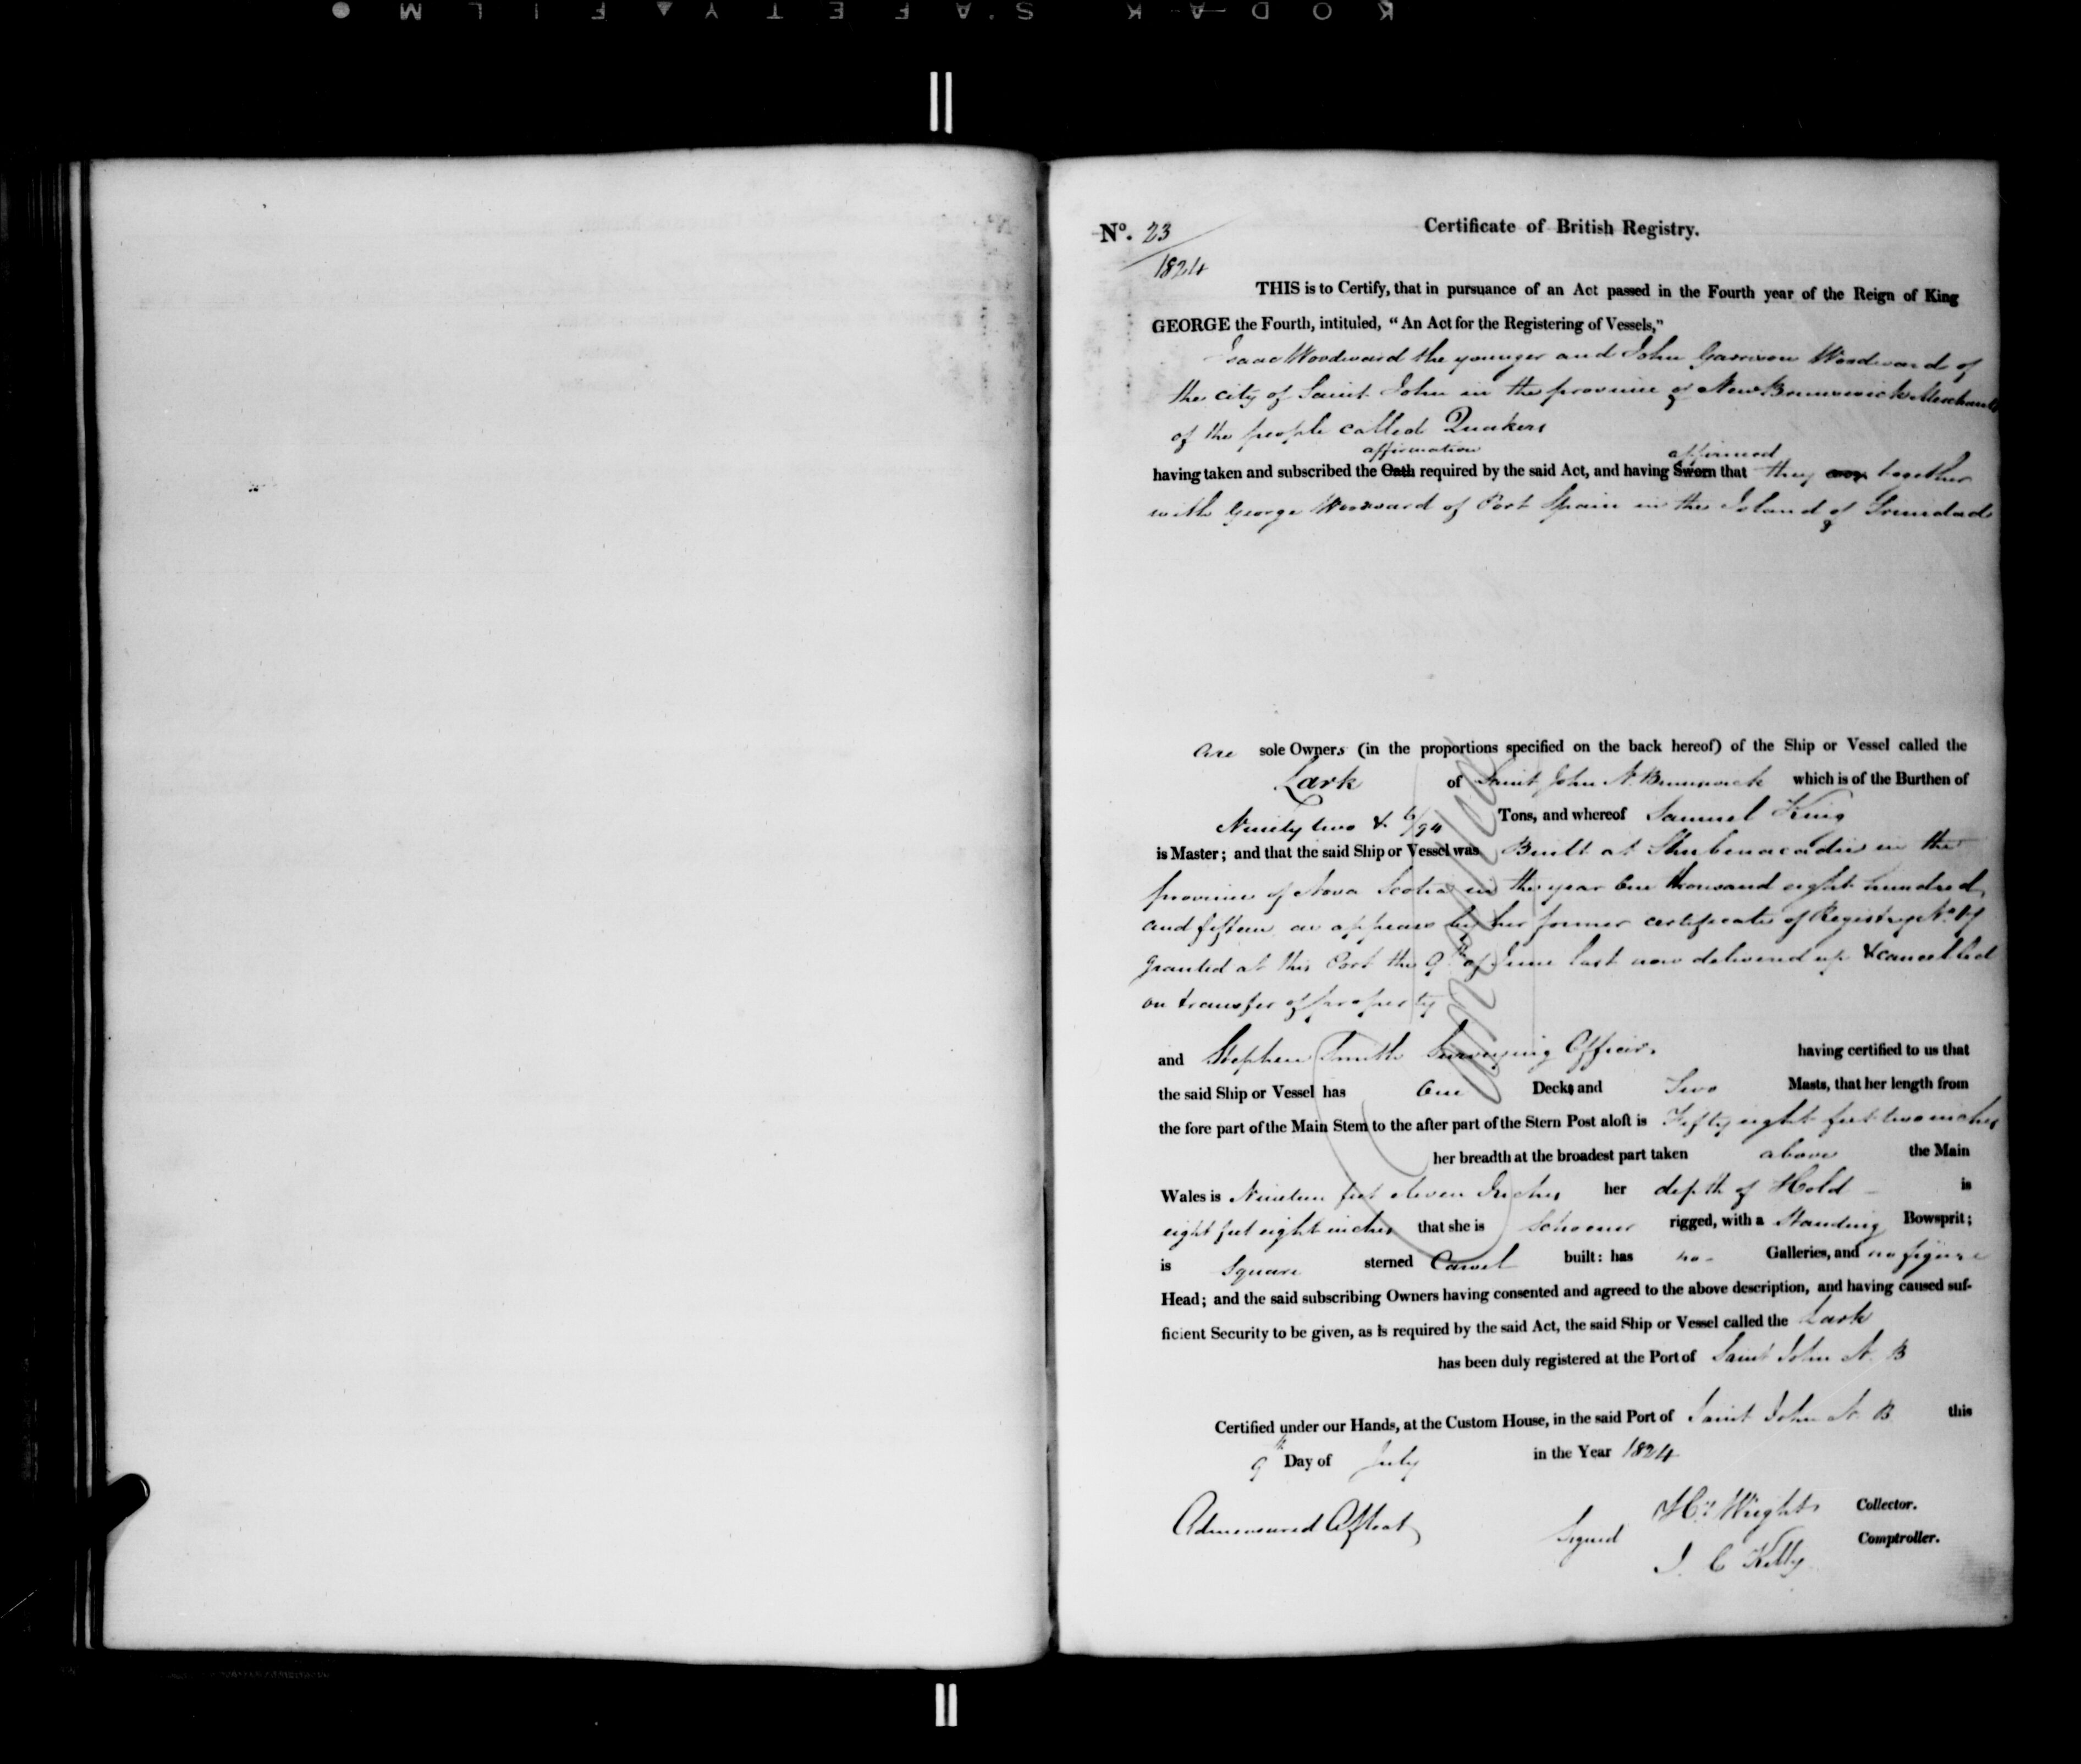 KODAK SAFETY FILM
No. 23
1824
Certificate of British Registry.
THIS is to Certify, that in pursuance of an Act passed in the Fourth year of the Reign of King
GEORGE the Fourth, intituled, “An Act for the Registering of Vessels,”
Isaac Woodward the younger and John Garrison Woodward of
the city of Saint John in the province of New Brunswick Merchants
of the people called Quakers
affirmation affirmed
having taken and subscribed the Oath required by the said Act, and having Sworn that they together
with George Woodward of Port Spain in the Island of Trinidad
are sole Owners (in the proportions specified on the back hereof) of the Ship or Vessel called the
Lark of Saint John N. Brunswick which is of the Burthen of
Ninety two & 6/94 Tons, and whereof Samuel King
is Master; and that the said Ship or Vessel was Built at Shubenacadie in the
province of Nova Scotia in the year One thousand eight hundred
and fifteen as appears by her former certificate of Registry No.
granted at this Port the 9th of June last now delivered up & cancelled
on transfer of property
Cancelled
and Stephen Smith Surveying Officer, having certified to us that
the said Ship or Vessel has One Deck and Two Masts, that her length from
the fore part of the Main Stem to the after part of the Stern Post aloft is Fifty eight feet two inches
her breadth at the broadest part taken above the Main
Wales is Nineteen feet eleven Inches her depth of Hold - is
eight feet eight inches that she is Schooner rigged, with a Standing Bowsprit;
is Square sterned Carvel built: has no - Galleries, and no figure
Head; and the said subscribing Owners having consented and agreed to the above description, and having caused suf-
ficient Security to be given, as is required by the said Act, the said Ship or Vessel called the Lark
has been duly registered at the Port of Saint John N. B
Certified under our Hands, at the Custom House, in the said Port of Saint John N. B. this
9th Day of July in the Year 1824
Admeasured Afloat Signed Hy. Wright Collector.
J. C Kelly Comptroller.